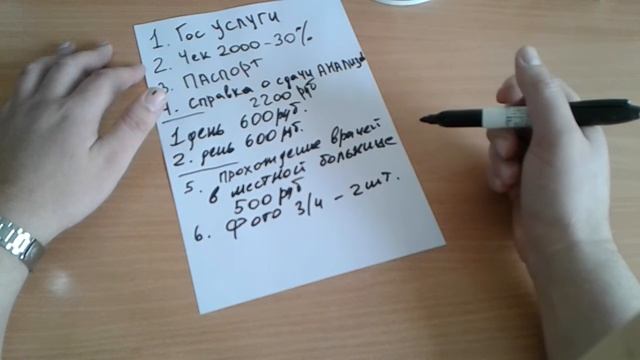 1. Гос услуги
2. Чек 2000-30%
3. Паспорт
4. справка о сдачи анализов
2200 руб
1 день 600 руб.
2. день 600 руб.
5. прохождение врачей
в местной больнице
500 руб
6. фото 3/4 - 2 шт.